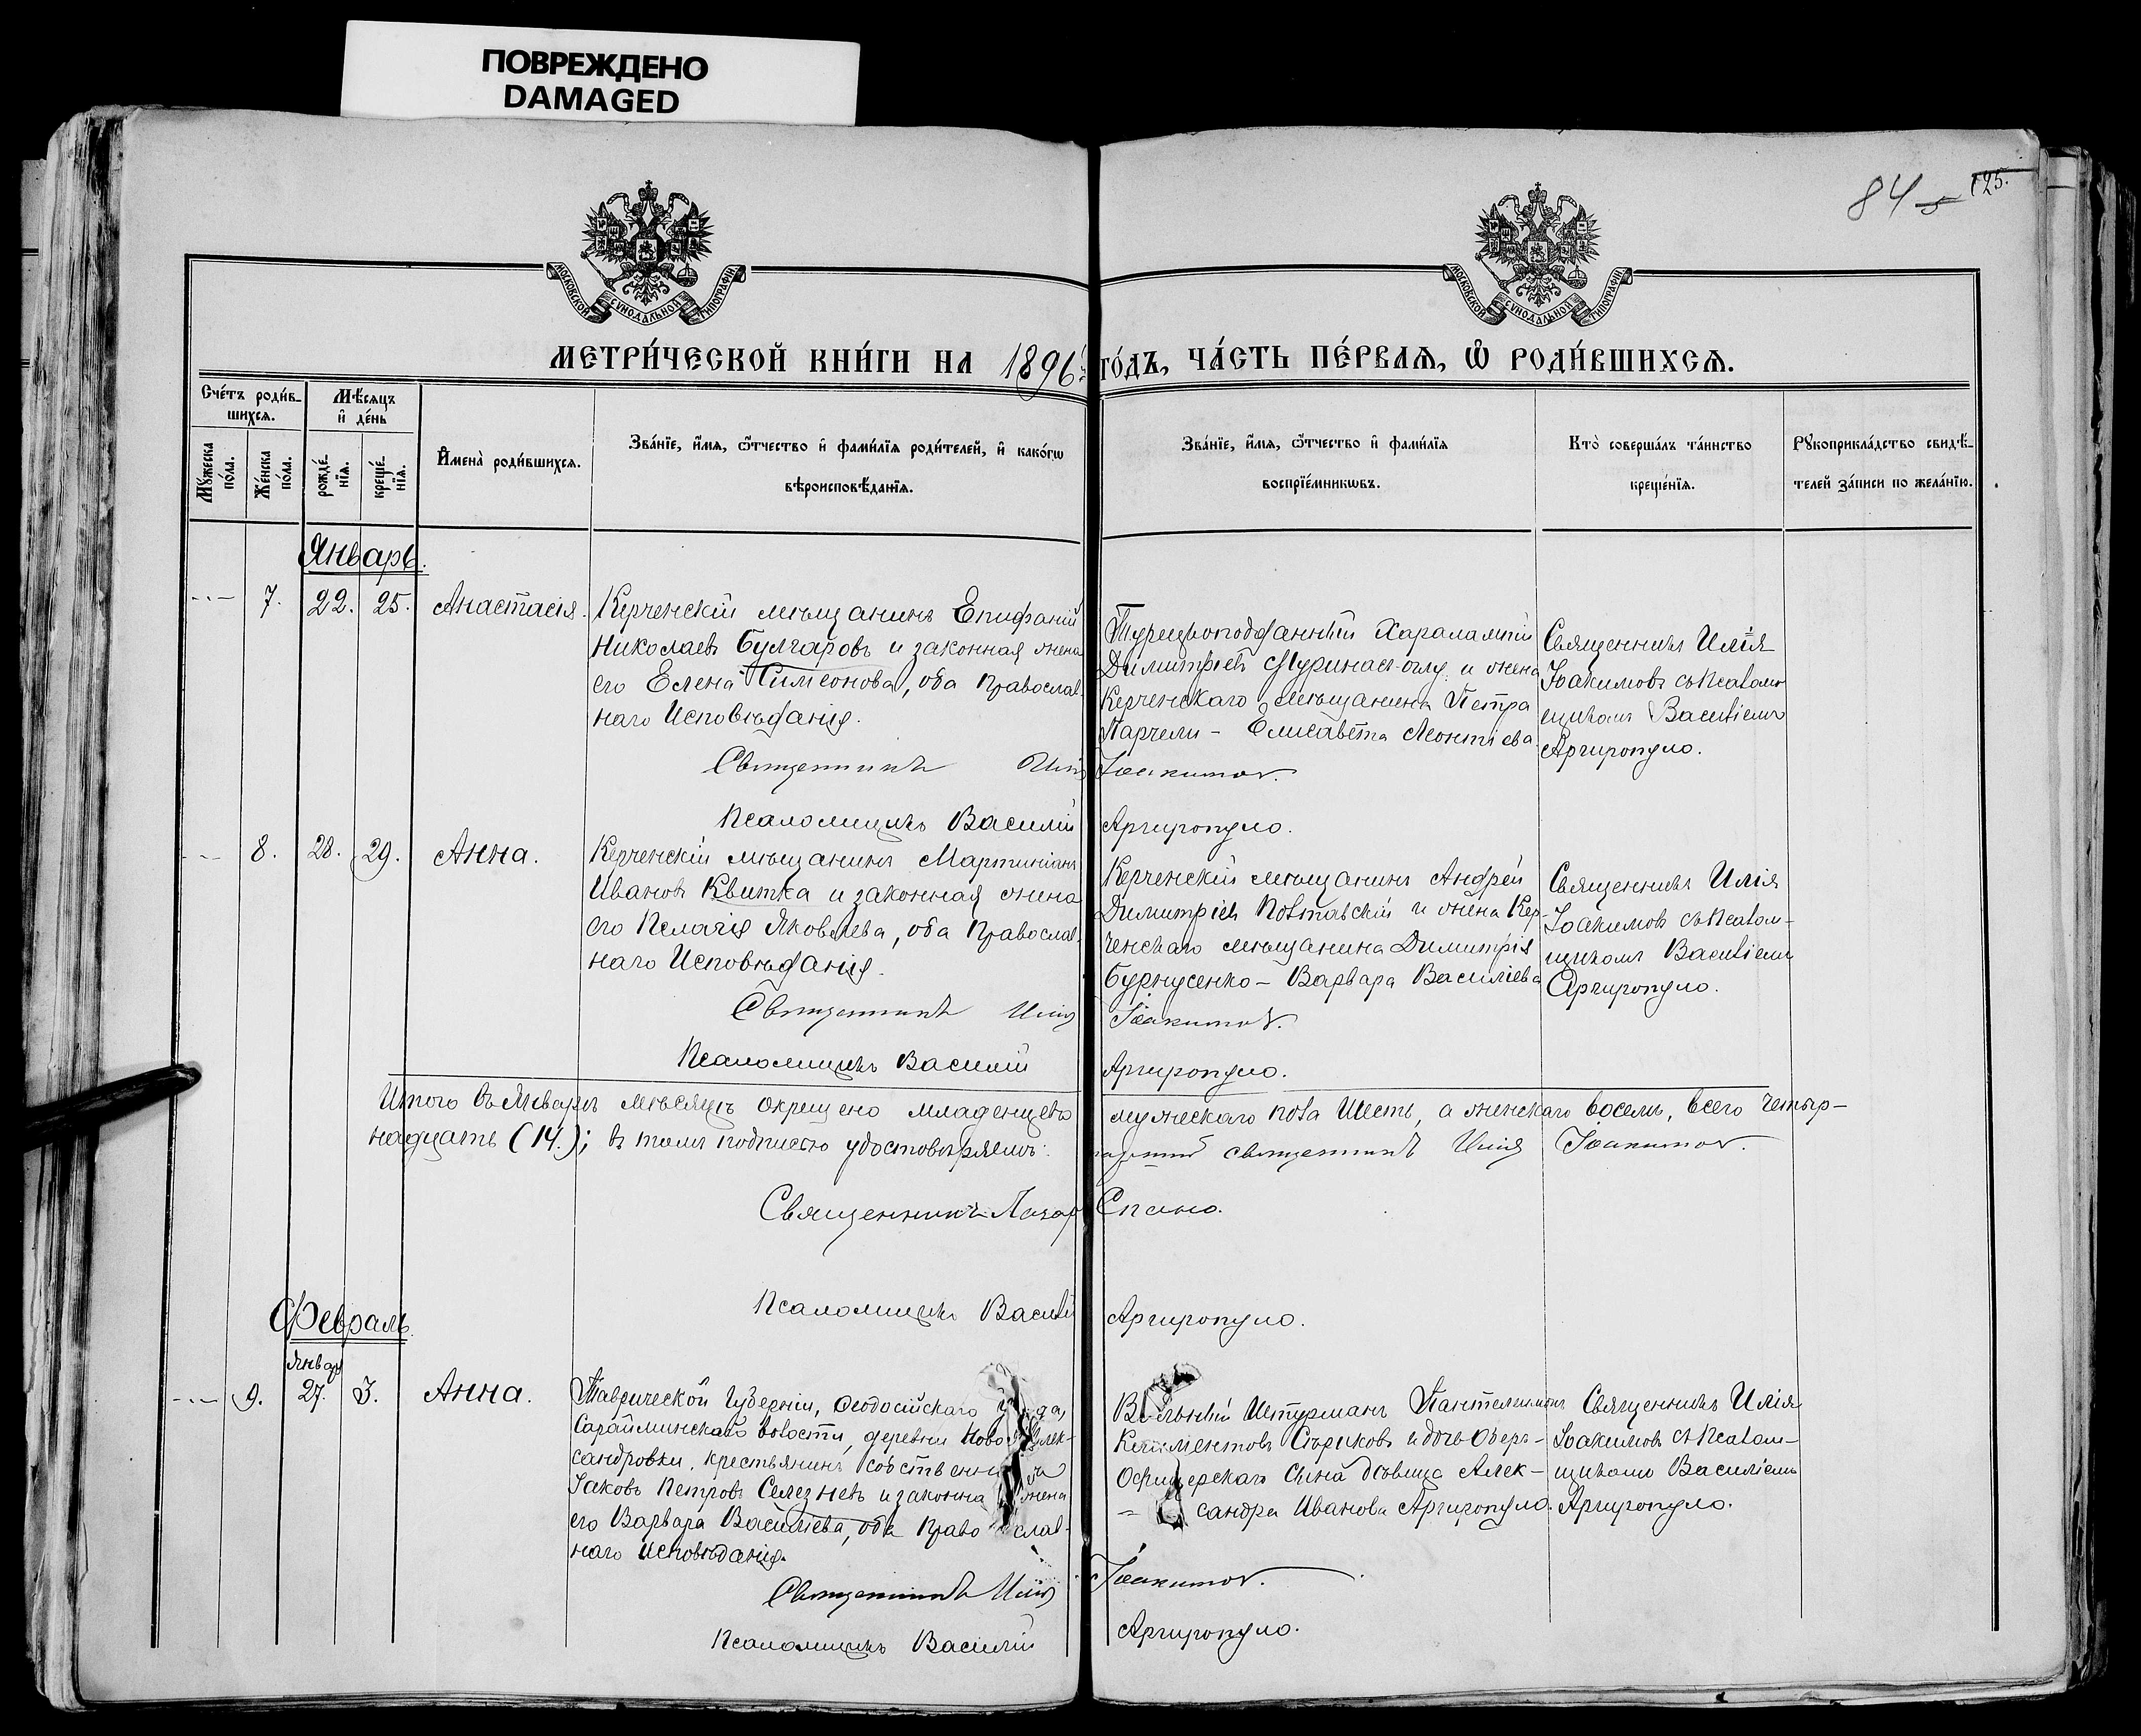 ПОВРЕЖДЕНО
DAMAGED
84 5 125.
МОСКОВСКОЙ СѴНОДАЛЬНОЙ ТИПОГРАФІИ
МОСКОВСКОЙ СѴНОДАЛЬНОЙ ТИПОГРАФІИ
МЕТРИ́ЧЕСКОЙ КНИ́ГИ НА 1896й ГО́ДЪ, ЧА́СТЬ ПЕ́РВАЯ, Ѡ РОДИ́ВШИХСЯ.
Сче́тъ роди́в-
шихся.
Мѣ́сяцъ
и҆ де́нь
Му́жеска
по́ла.
Же́нска
по́ла.
рожде́-
нїя.
креще́-
нїя.
И҆мена̀ роди́вшихся.
Зва́нїе, и҆́мя, ѻ҆́тчество и҆ фами́лїя роди́телей, и҆ како́гѡ
вѣроисповѣ́данїя.
Зва́нїе, и҆́мя, ѻ҆́тчество и҆ фами́лїя
воспрїе́мникѡвъ.
Кто̀ соверша́лъ та́инство
креще́нїя.
Рꙋкоприкла́дство свидѣ́-
телей за́писи по жела́нїю.
Январь.
7. 22. 25. Анастасія.
Керченскій мѣщанинъ Епифаній
Николаевъ Булгаровъ и законная жена
его Елена Симеонова, оба Православ-
наго Исповѣданія.
Турецкоподданный Харалампій
Димитріевъ Муринась-оглу и жена
Керченскаго Мѣщанина Петра
Парчели – Елисавета Леонтіева.
Священникъ Илія
Іоакимовъ съ Псалом-
щикомъ Василіемъ
Аргиропуло.
Священникъ Илія Іоакимов.
Псаломщикъ Василій Аргиропуло.
8. 28. 29. Анна.
Керченскій мѣщанинъ Мартиніанъ
Ивановъ Квитка и законная жена
его Пелагія Яковлева, оба Православ-
наго Исповѣданія.
Керченскій мѣщанинъ Андрей
Димитріевъ Полтавскій и жена Кер-
ченскаго мѣщанина Димитрія
Бурнусенко – Варвара Василіева
Священникъ Илія
Іоакимовъ съ Псалом-
щикомъ Василіемъ
Аргиропуло.
Священникъ Илія Іоакимов.
Псаломщикъ Василій Аргиропуло.
Итого въ Январѣ мѣсяцѣ окрещено младенцевъ мужескаго пола Шесть, а женскаго восемь, всего четыр-
надцать (14.); въ томъ подписью удостовѣряемъ: священникъ Илія Іоакимов.
Священникъ Лазар Спано.
Псаломщикъ Василій Аргиропуло.
Февраль.
Январ
9. 27. 3. Анна.
Таврической Губерніи, Ѳеодосійскаго Уѣзда,
Сарайминской волости, деревни Ново-Алек-
сандровки, крестьянинъ собственникъ
Іаковъ Петровъ Селезневъ и законная жена
его Варвара Василіева, оба Православ-
наго Исповѣданія.
Вольный Штурманъ Пантелеимонъ
Климентовъ Сѣриковъ и дочь Оберъ-
Офицерскаго Сына дѣвица Алек-
сандра Иванова Аргиропуло.
Священникъ Илія
Іоакимовъ съ Псалом-
щикомъ Василіемъ
Аргиропуло.
Священникъ Илія Іоакимов.
Псаломщикъ Василій Аргиропуло.